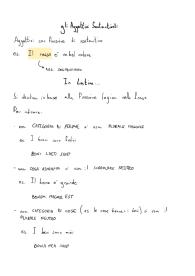 gli Aggettivi Sostantivati
Aggettivi con funzione di sostantivo
es. Il rosso è un bel colore
agg. sostantivato
In latino...
Si declina in base alla funzione logica nella frase
Per
- una CATEGORIA DI PERSONE è con PLURALE MASCHILE
es. I buoni sono felici
BONI LAETI SUNT
- una COSA ASTRATTA è con il SINGOLARE NEUTRO
es. Il bene è grande
BONUM MAGNUM EST
- una CATEGORIA DI COSE (es. le cose buone: i beni) è con il
PLURALE NEUTRO
es. I beni sono miei
BONA MEA SUNT